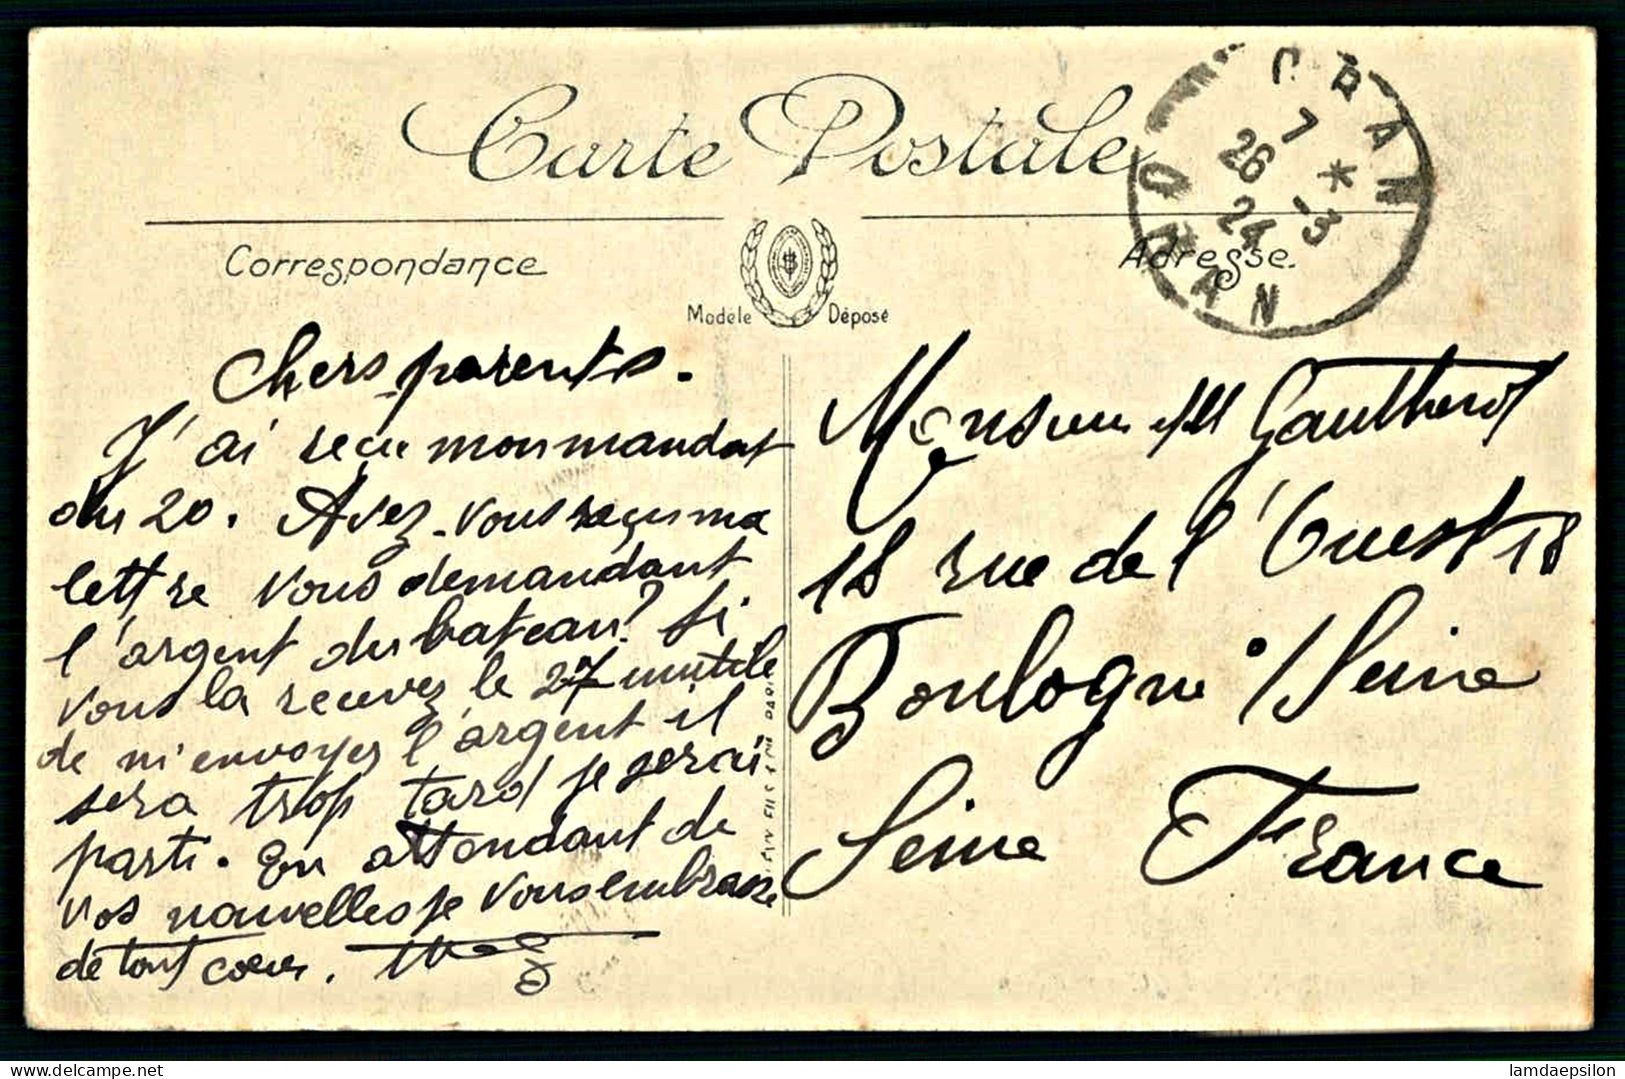 Carte Postale
ORAN
ORAN
7 *
26 -3
24
Correspondance
Adresse.
Modèle Déposé
Chers parents.
J'ai reçu mon mandat
du 20. Avez-vous reçu ma
lettre vous demandant
l'argent du bateau? Si
vous la recevez le 27 inutile
de m'envoyer l'argent il
sera trop tard je serai
parti. En attendant de
vos nouvelles je vous embrasse
de tout cœur.
Monsieur Gautherot
18 rue de l'Ouest 18
Boulogne s/Seine
Seine France
FILS PARIS
lamdaepsilon